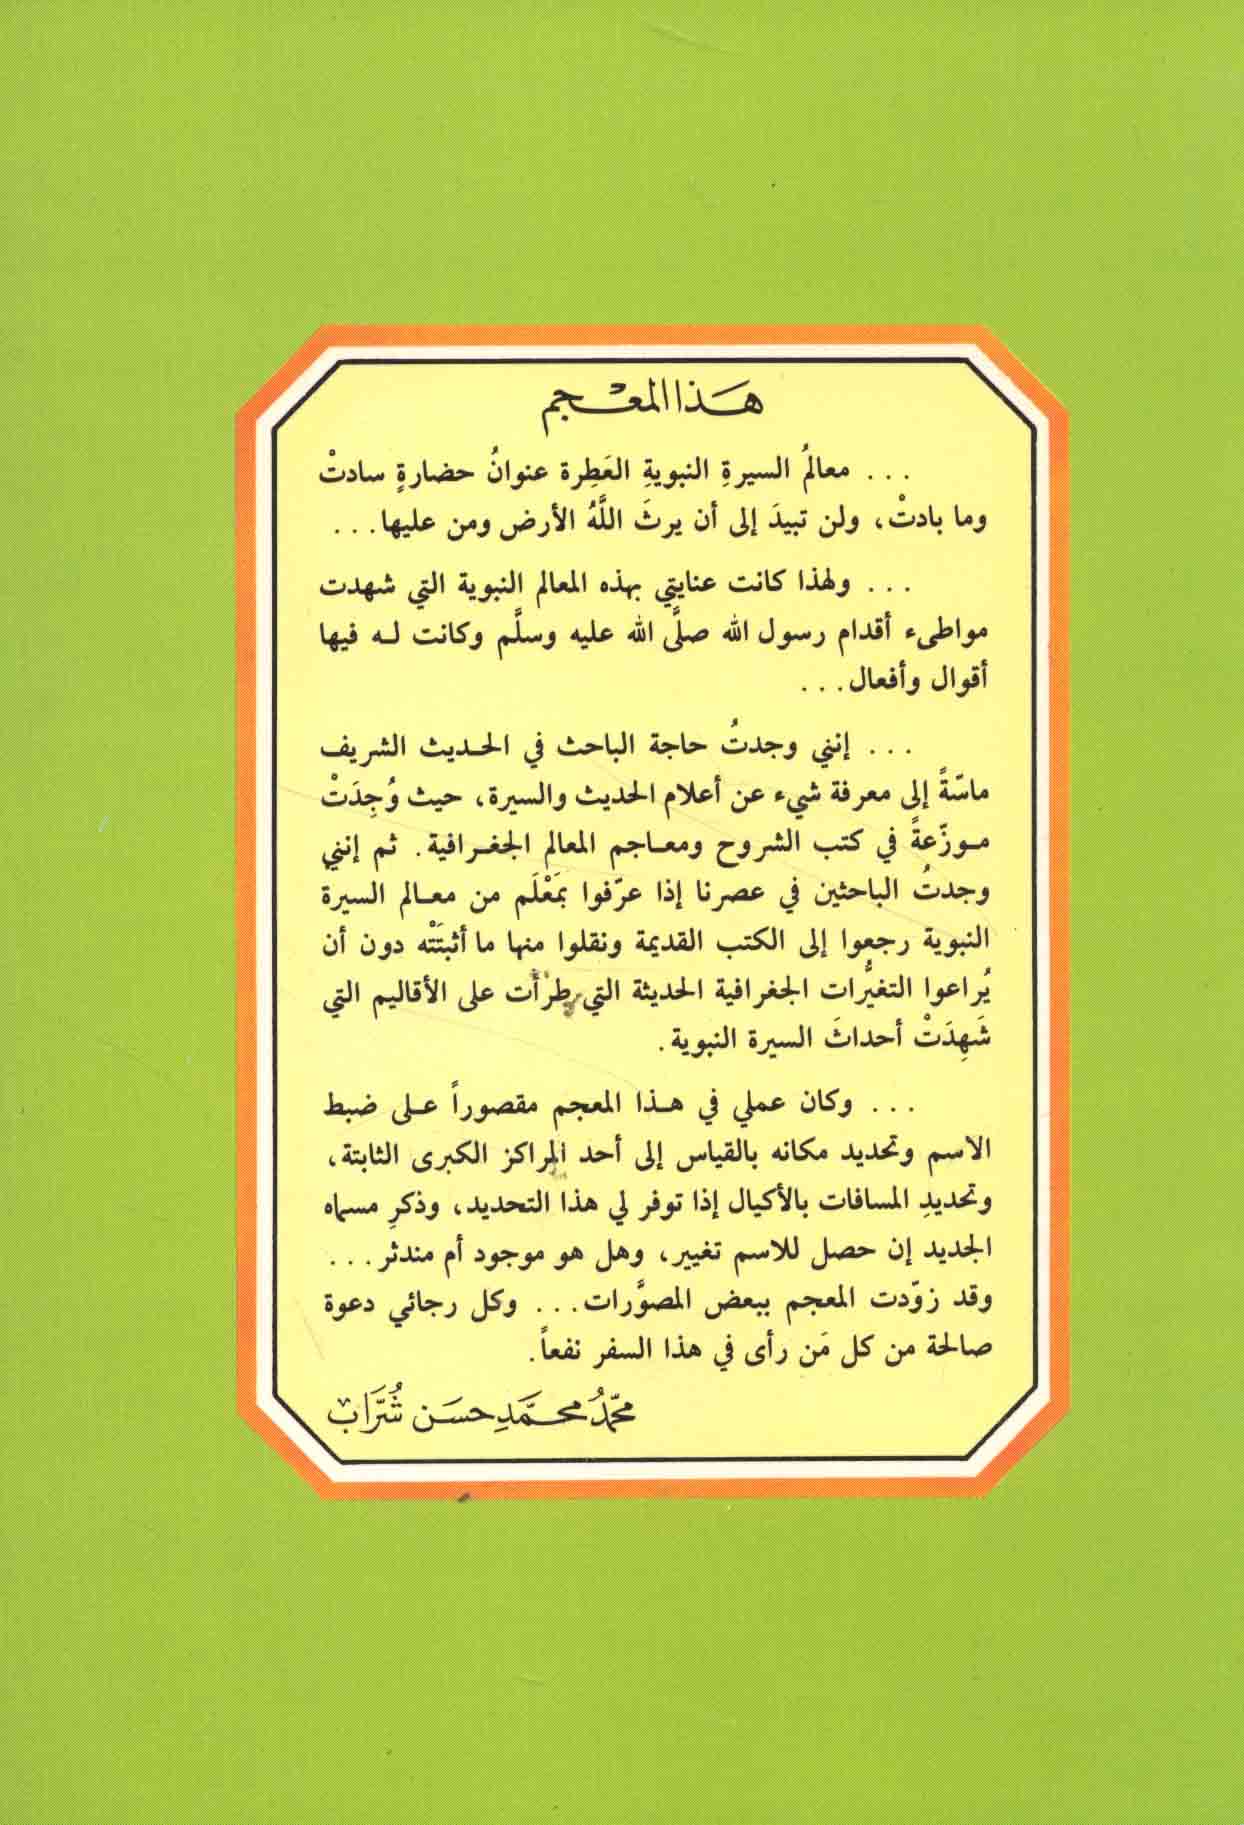 هذا المعجم
... معالمُ السيرةِ النبويةِ العَطِرة عنوانُ حضارةٍ سادتْ
وما بادتْ، ولن تبيدَ إلى أن يرثَ اللَّهُ الأرض ومن عليها...
... ولهذا كانت عنايتي بهذه المعالم النبوية التي شهدت
مواطىء أقدام رسول الله صلَّى الله عليه وسلَّم وكانت لـه فيها
أقوال وأفعال...
... إنني وجدتُ حاجة الباحث في الحـديث الشريف
ماسّةً إلى معرفة شيء عن أعلام الحديث والسيرة، حيث وُجِدَتْ
مـوزّعةً في كتب الشروح ومعـاجم المعالم الجغـرافية. ثم إنني
وجدتُ الباحثين في عصرنا إذا عرّفوا بمَعْلَم من معـالم السيرة
النبوية رجعوا إلى الكتب القديمة ونقلوا منها ما أثبتَتْه دون أن
يُراعوا التغيُّرات الجغرافية الحديثة التي طرَأَت على الأقاليم التي
شَهِدَتْ أحداثَ السيرة النبوية.
... وكان عملي في هـذا المعجم مقصوراً عـلى ضبط
الاسم وتحديد مكانه بالقياس إلى أحد المراكز الكبرى الثابتة،
وتحديدِ المسافات بالأكيال إذا توفر لي هذا التحديد، وذكرِ مسماه
الجديد إن حصل للاسم تغيير، وهل هو موجود أم مندثر...
وقد زوّدت المعجم ببعض المصوَّرات... وكل رجائي دعوة
صالحة من كل مَن رأى في هذا السفر نفعاً.
محمّدُ محمَّد حسَن شُرَّاب